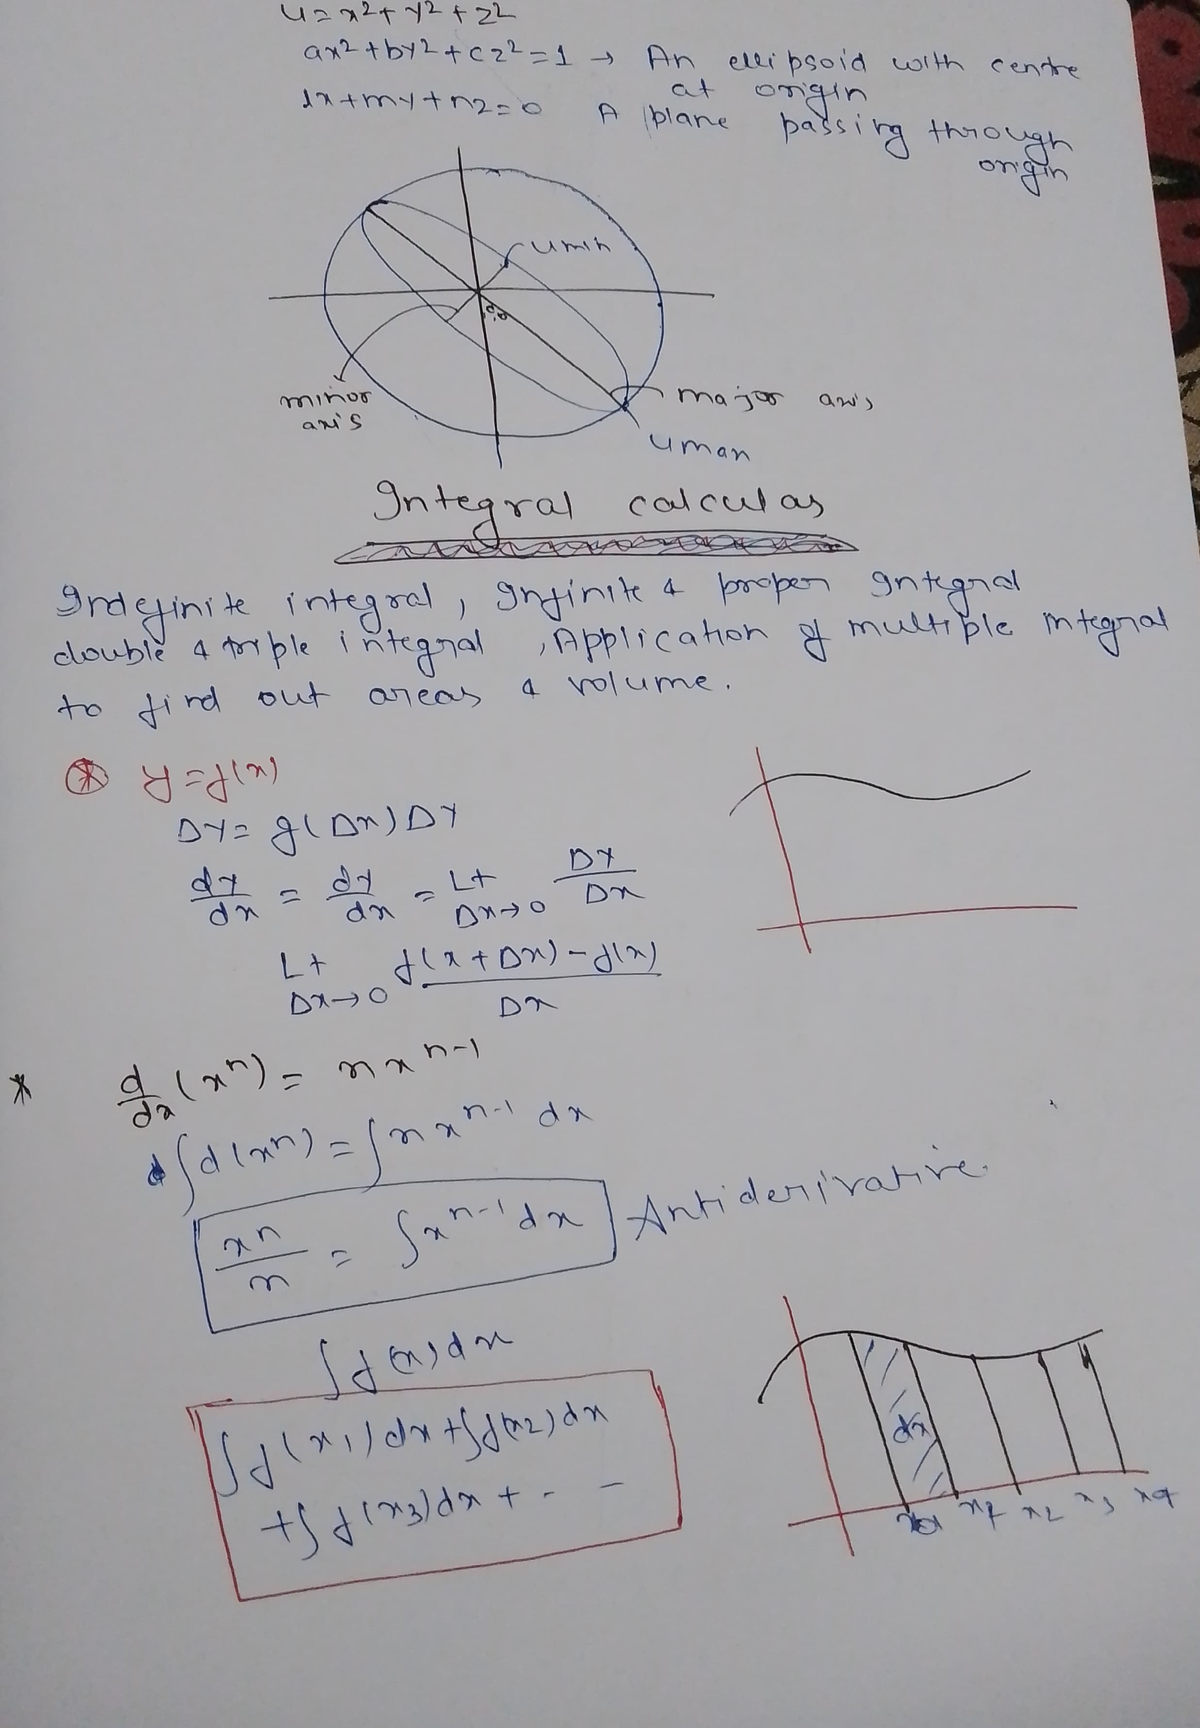 u = x² + y² + z²
ax² + by² + cz² = 1 → An ellipsoid with centre
at origin
lx + my + nz = 0 A plane passing through
origin
umin
minor
axis
major axis
uman
Integral calculas
Indefinite integral, Infinite & proper Integral
double & triple integral, Application of multiple integral
to find out areas & volume.
* y = f(x)
Δy = g(Δx) Δy
dy/dx = dy/dx = Lt Δx→0 Δy/Δx
Lt Δx→0 f(x+Δx) - f(x) / Δx
* d/dx (xⁿ) = n x^(n-1)
∫d(xⁿ) = ∫n x^(n-1) dx
xⁿ/n = ∫x^(n-1) dx Antiderivative
∫f(x)dx
∫f(x₁)dx + ∫f(x₂)dx
+ ∫f(x₃)dx + - -
dx
x₂ x₃ x₄